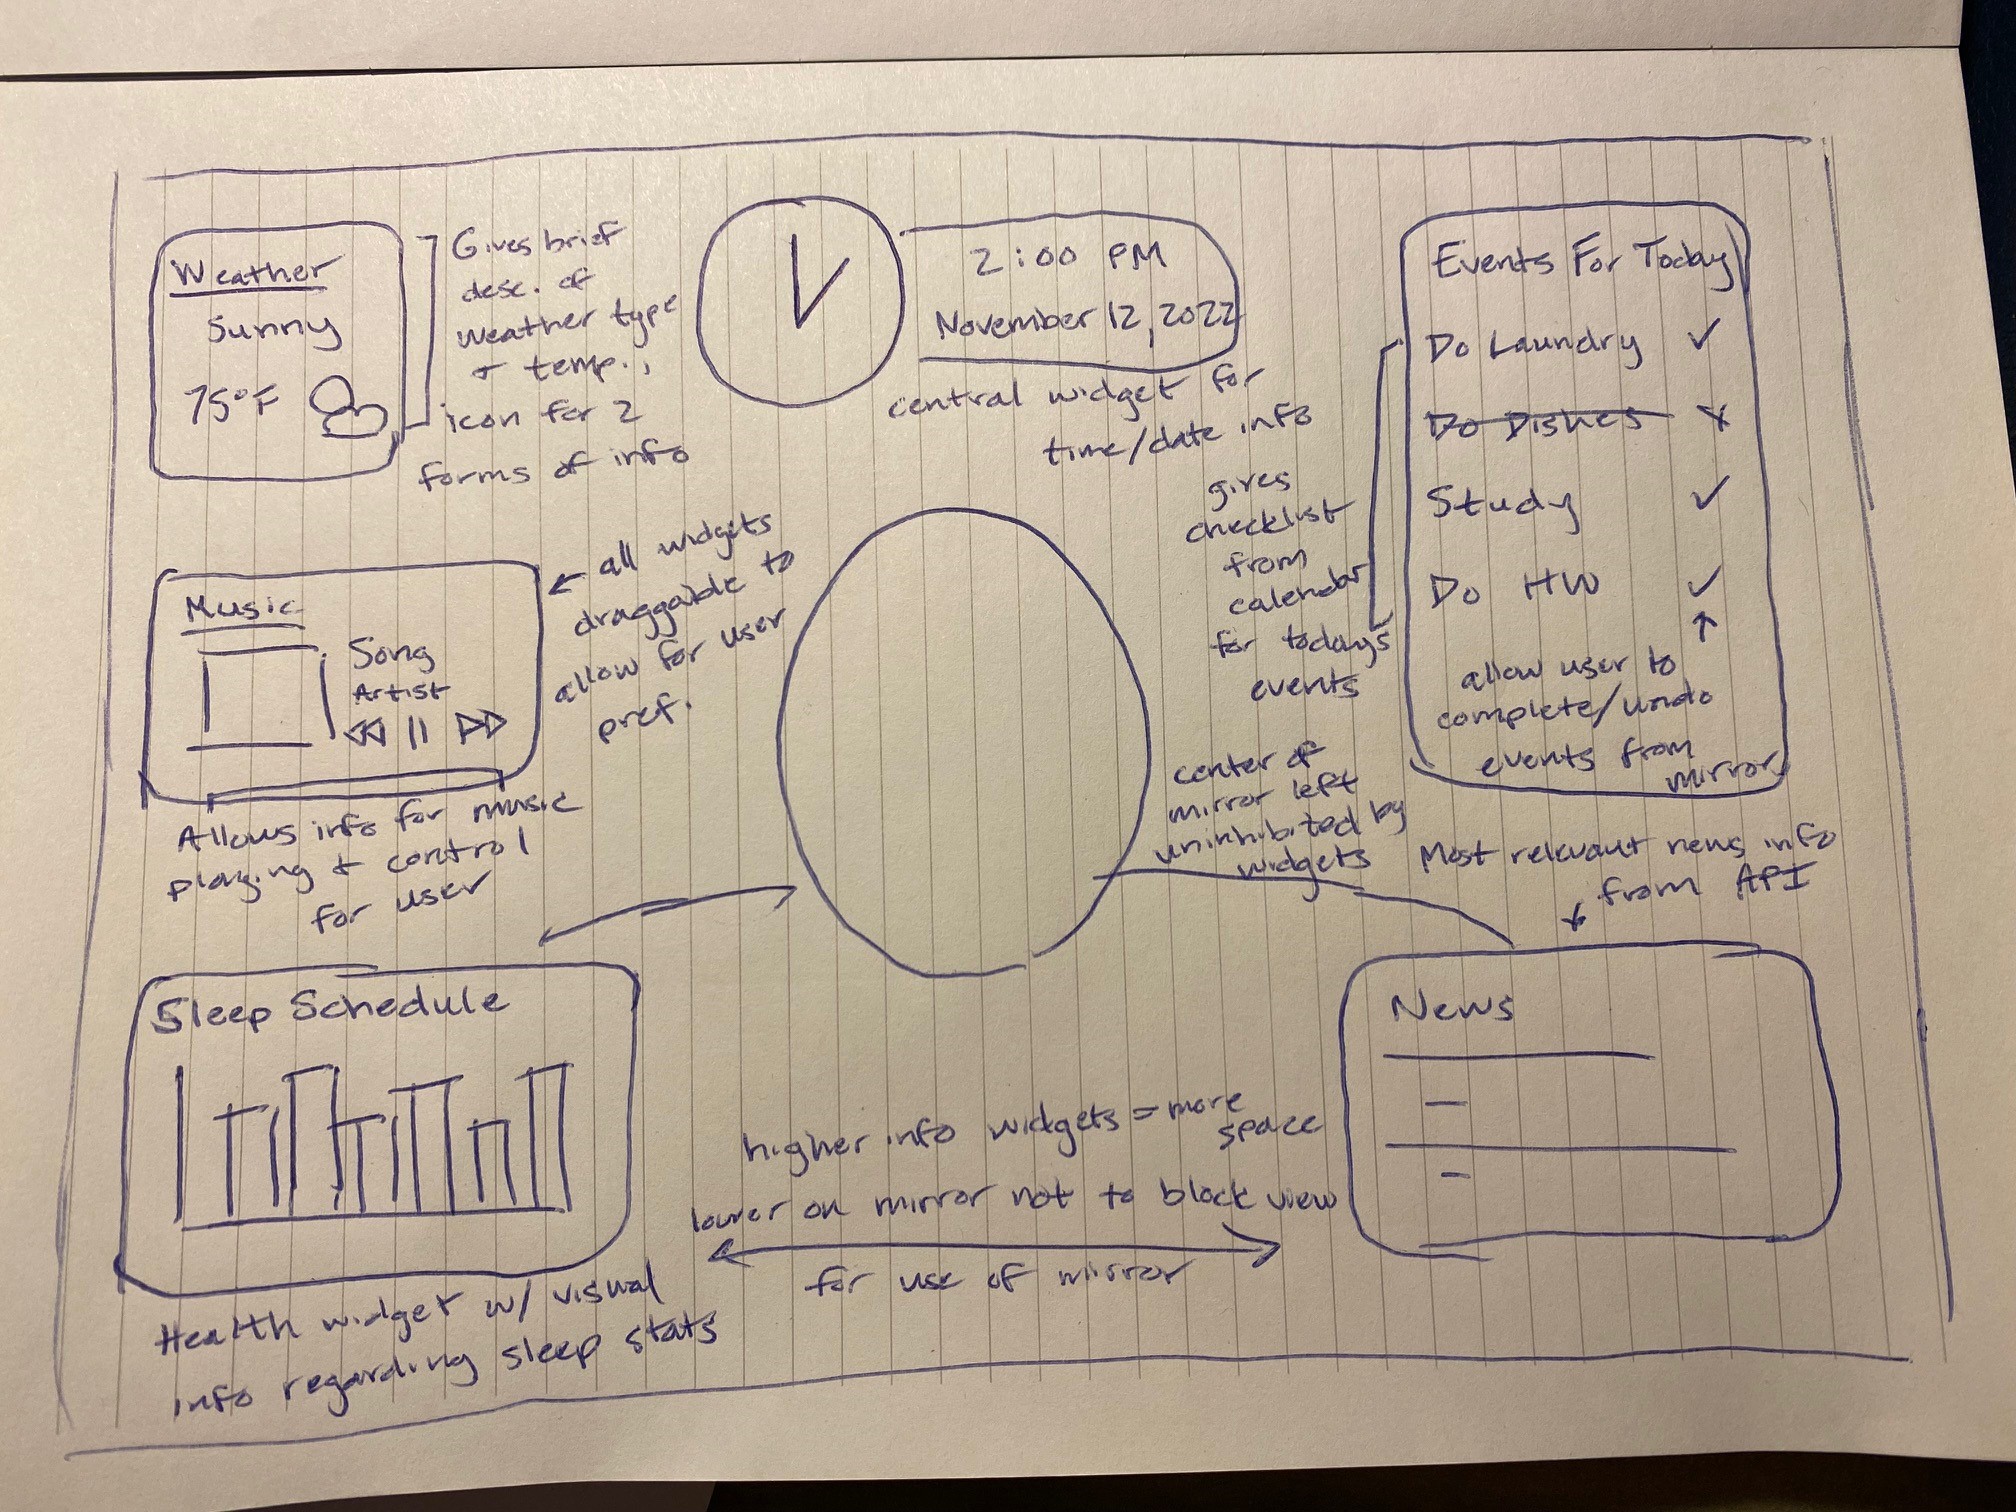 Weather
Sunny
75°F
Gives brief
desc. of
weather type
+ temp.,
icon for 2
forms of info
2:00 PM
November 12, 2022
central widget for
time/date info
Events For Today
Do Laundry ✓
Do Dishes X
Study ✓
Do HW ✓
allow user to
complete/undo
events from
mirror
gives
checklist
from
calendar
for todays
events
Music
Song
Artist
all widgets
draggable to
allow for user
pref.
Allows info for music
playing + control
for user
center of
mirror left
uninhibited by
widgets
Most relevant news info
from API
Sleep Schedule
News
higher info widgets = more
space
lower on mirror not to block view
for use of mirror
Health widget w/ visual
info regarding sleep stats